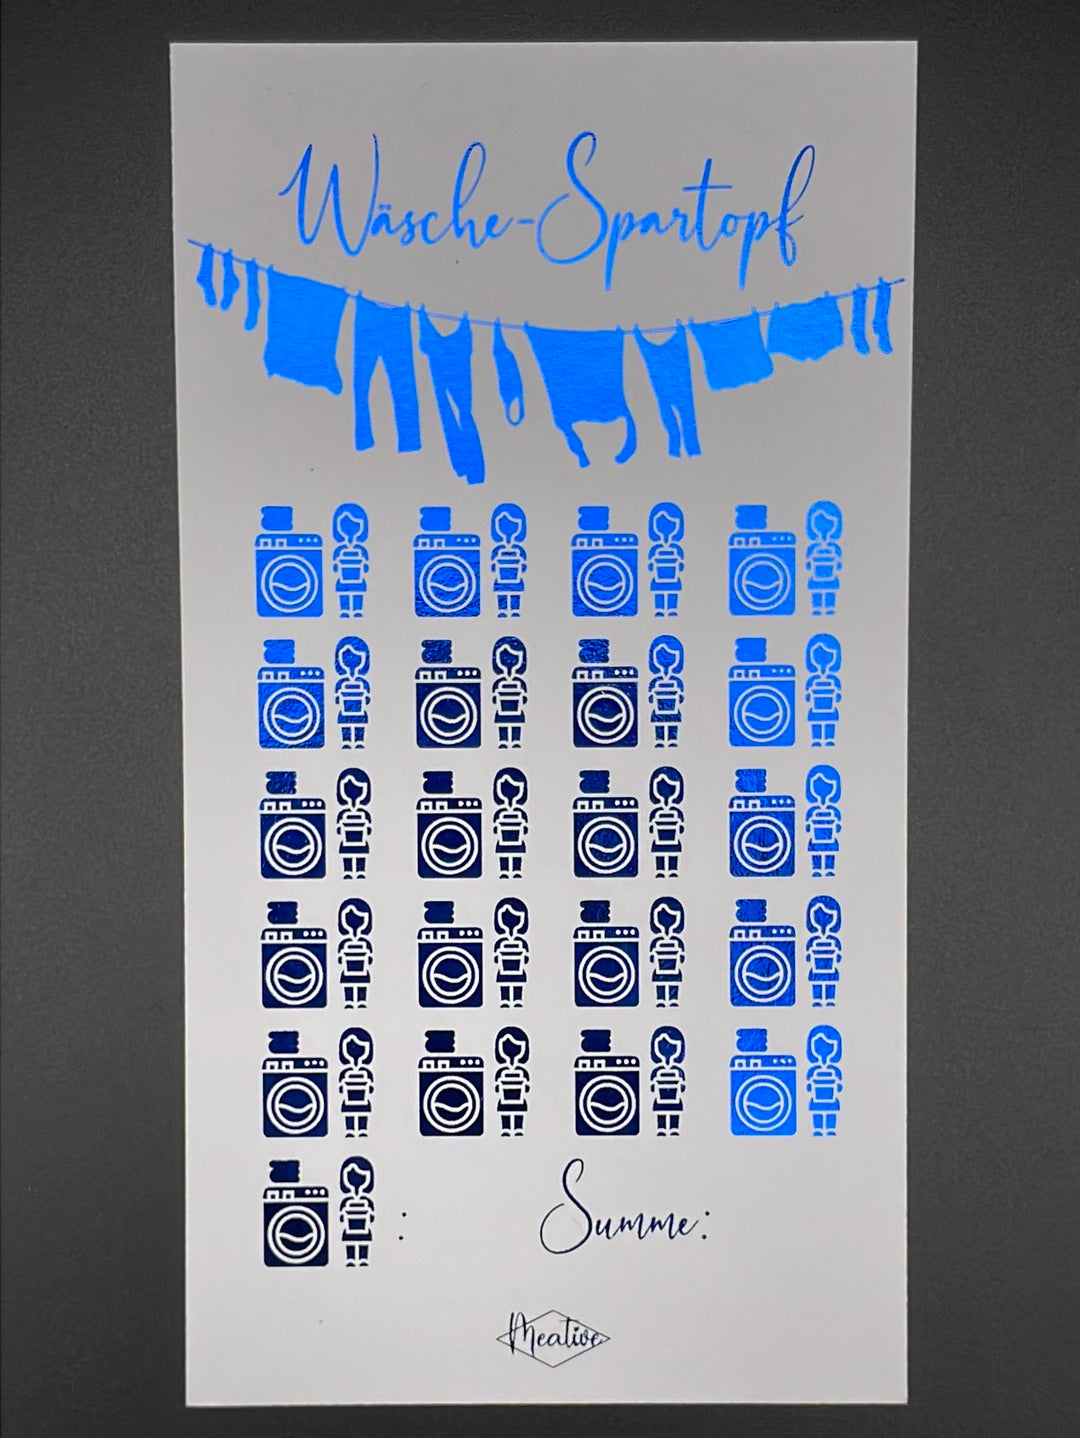 Wäsche-Spartopf
:
Summe:
Meative